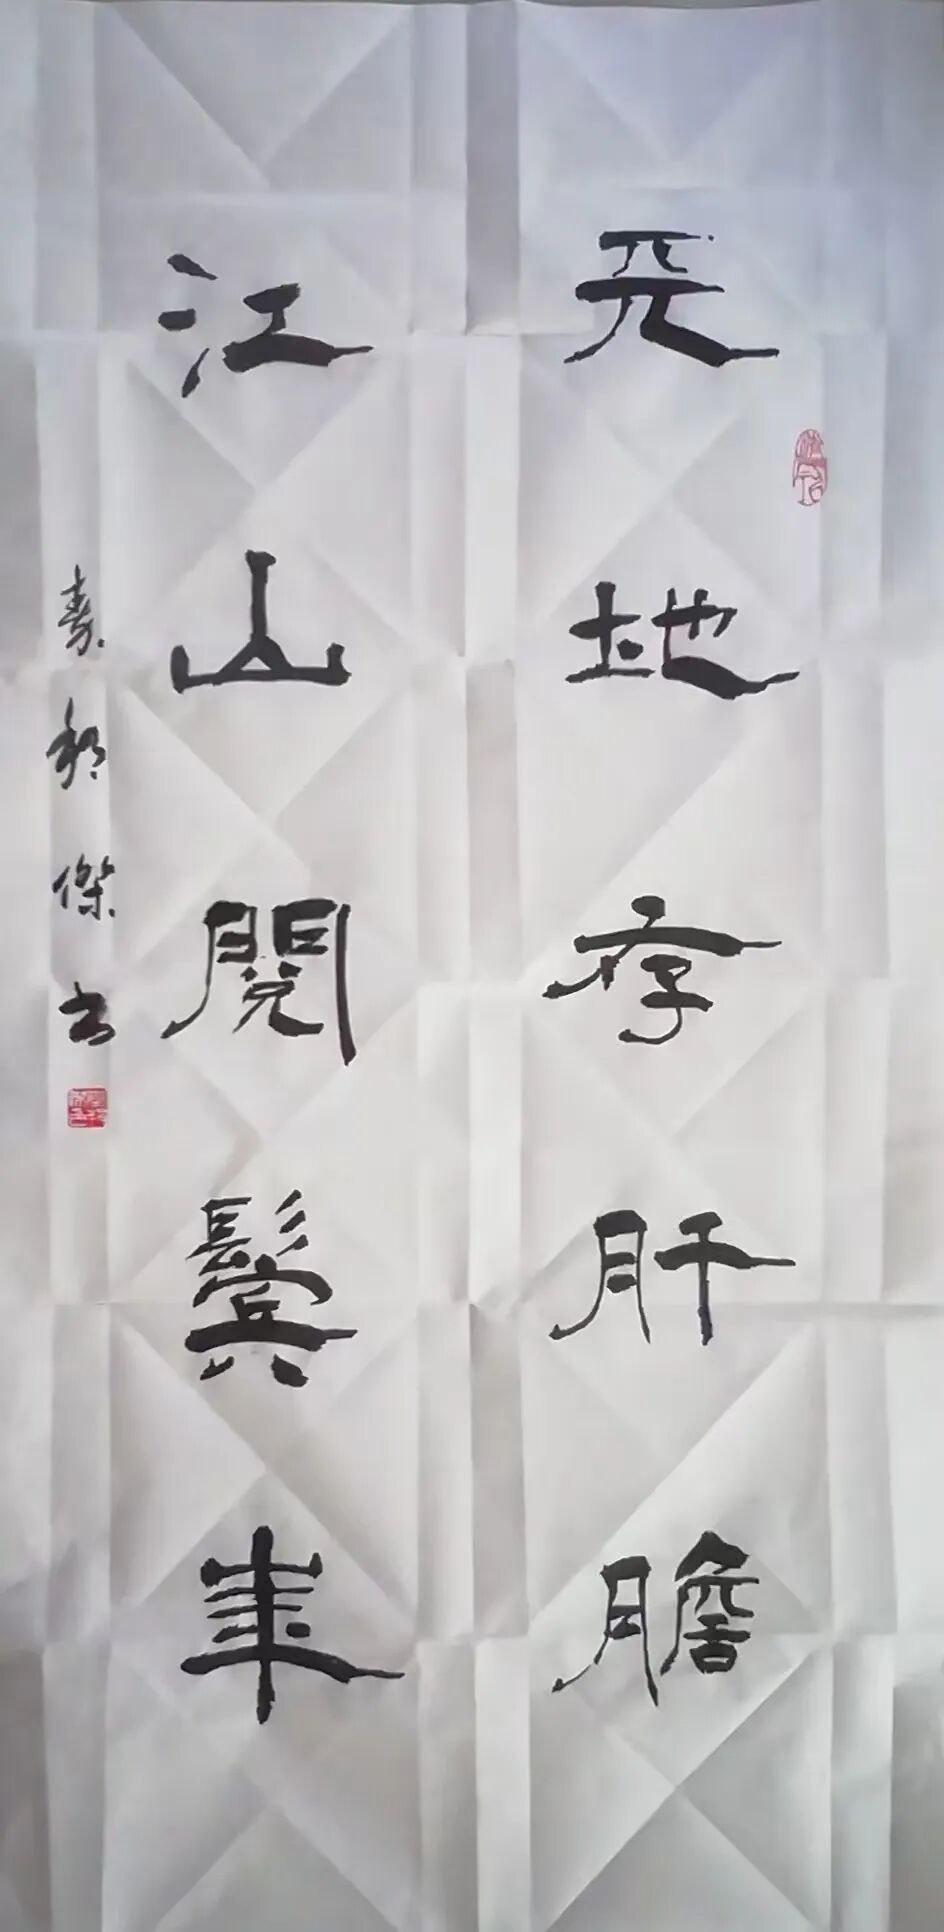 天地存肝膽
江山閱鬢華
傑書